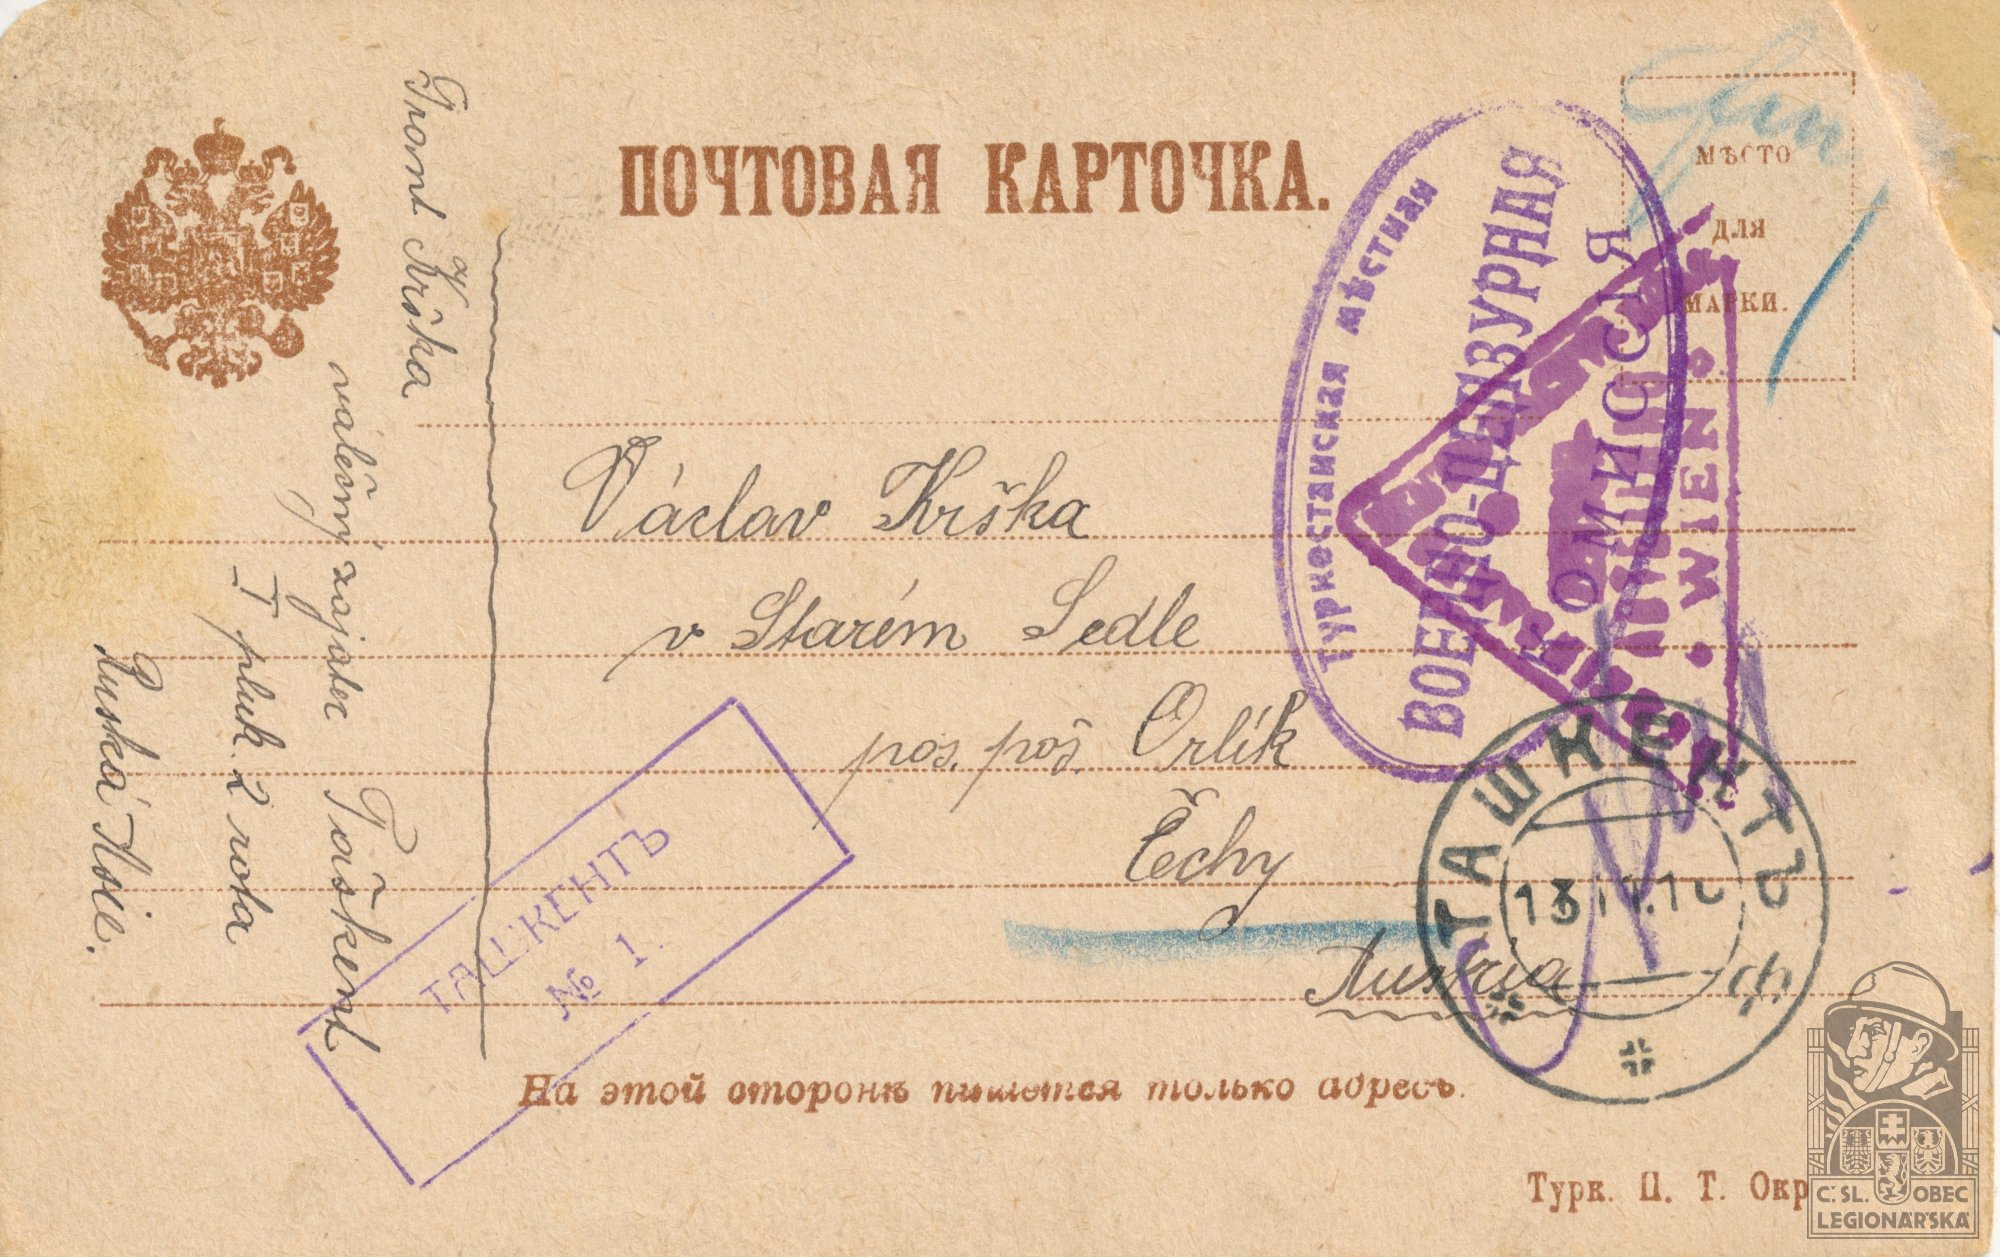 ПОЧТОВАЯ КАРТОЧКА.
МѢСТО
ДЛЯ
МАРКИ.
Frant Krška
válečný zajatec Taškent
I pluk 2 rota
Ruská Asie.
Václav Krška
v Starém Sedle
pos. poš. Orlík
Čechy
Austria
Туркестанская мѣстная
ВОЕННО-ЦЕНЗУРНАЯ
КОМИССІЯ
WIEN
ТАШКЕНТЪ
№ 1.
ТАШКЕНТЪ
На этой сторонѣ пишется только адресъ.
Турк. П. Т. Окр
Č. SL. OBEC
LEGIONÁŘSKÁ